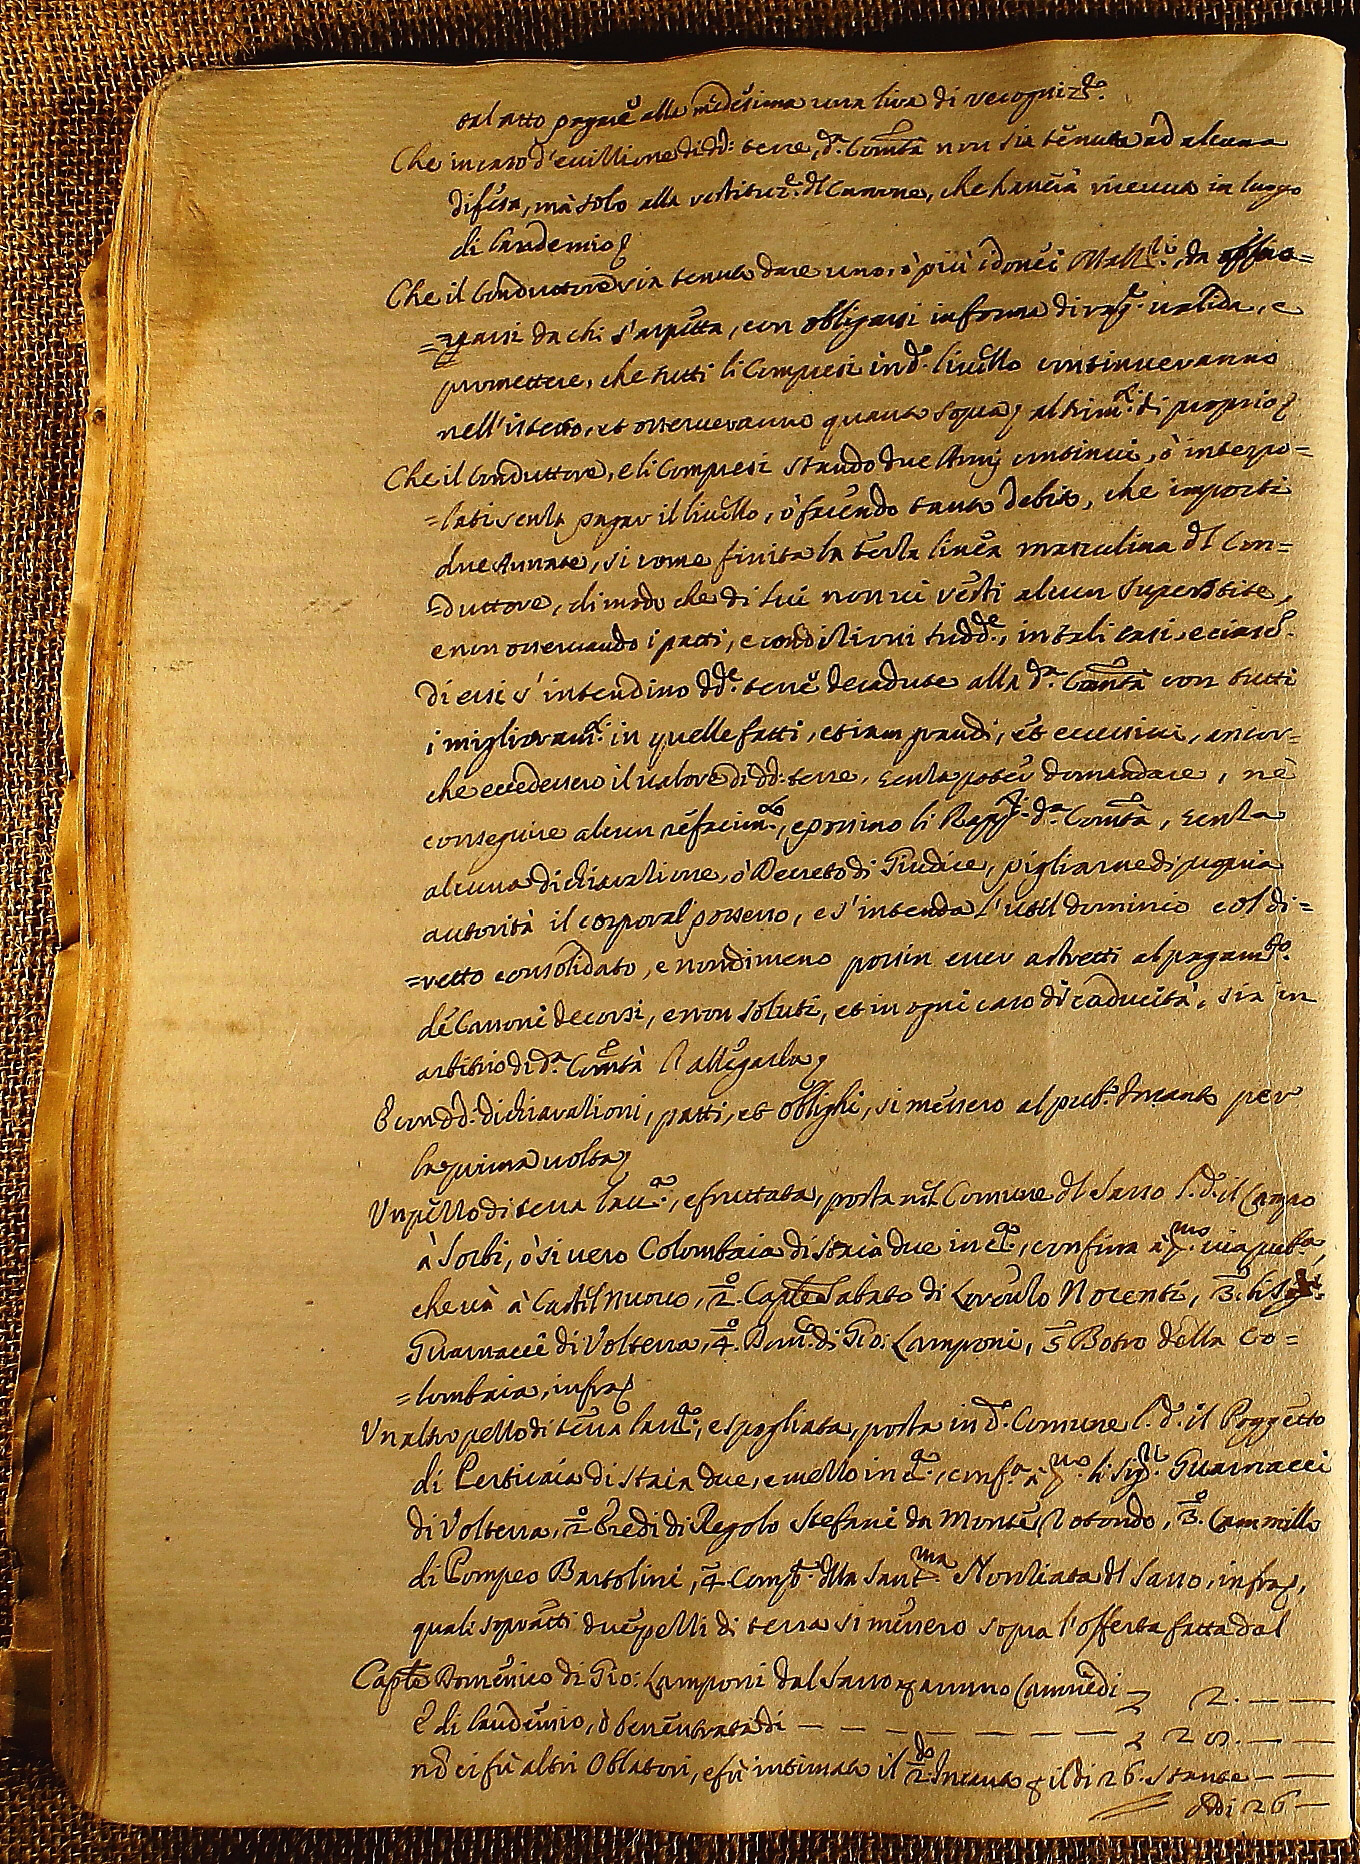 tal atto pagare alla medesima una lira di recogniz.ne
Che in caso d'evizzione di dd: terre, d.a Com.tà non sia tenuta ad alcuna
difesa, mà solo alla restituz.e d'l Canone, che haverà ricevuto in luogo
di laudemio
Che il Conduttore sia tenuto dare uno, ò più idonei Mall.ri, da appro=
=varsi da chi s'aspetta, con obligarsi in forma di rag.e valida, e
promettere, che tutti li Compresi in d.o livello continueranno
nell'istesso, et osserveranno quanto sopra altrim.ti di proprio
Che il Conduttore, e li Compresi stando due Anni continui, ò interpo=
=lati senza pagar il livello, ò facendo tanto debito, che importi
due Annate, si come finita la terza linea masculina d'l Con=
=duttore, di modo che di lui non vi resti alcun superstite,
e non osservando i patti, e condizioni sudd.e, in tali casi, e ciasc.o
di essi s'intendino dd.e terre decadute alla d.a Com.tà con tutti
i miglioram.ti in quelle fatti, etiam grandi, et eccessivi, ancor=
che eccedessero il valore di dd: terre, senza poter domandare, nè
conseguire alcun refacim.to, e possino li Rapp.ti d.a Com.tà, senza
alcuna dichiarazione, ò Decreto di Giudice, pigliarne di propria
autorità il corporal possesso, e s'intenda l'util dominio col di=
=retto consolidato, e nondimeno possin esser astretti al pagam.to
de Canoni decorsi, e non soluti, et in ogni caso di caducità, sia in
arbitrio di d.a Com.tà l'allegarla
E con dd. dichiarazioni, patti, et oblighi, si messero al pub.o Incanto per
la prima volta
Un pezzo di terra lau.a, e fruttata, posta nel Comune d'l Sasso l.d. il Campo
à Sorbi, ò si vero Colombaia di staia due in c.a, confina à p.mo via pub.a
che và à Castel Nuovo, 2.o Cap.le Sabato di Lorenzo Nocenti, 3. li Sig.ri
Guarnacci di Volterra, 4.o Dom.co di Gio: Lamponi, 5 Botro della Co=
=lombaia, infra
Un altro pezzo di terra lau.a, e spogliata, posta in d.o Comune l.d. il Poggetto
di Perticaia di staia due, e mezzo in c.a, conf.a à p.mo li Sig.ri Guarnacci
di Volterra, 2.o Eredi di Regolo Stefani da Monte Rotondo, 3.o Cammillo
di Pompeo Bartolini, 4 Comp.a d'lla Sant.ma Nonziata d'l Sasso, infra,
quali sopradetti due pezzi di terra si messero sopra l'offerta fatta dal
Cap.le Domenico di Gio: Lamponi dal Sasso p annuo Canone di £ 2. — —
E di laudemio, ò ben entrata di — — — — — — £ 28. — —
nō ci fù altri Oblatori, e fù intimato il 2.do Incanto p il di 26. stante — —
Adi 26 —